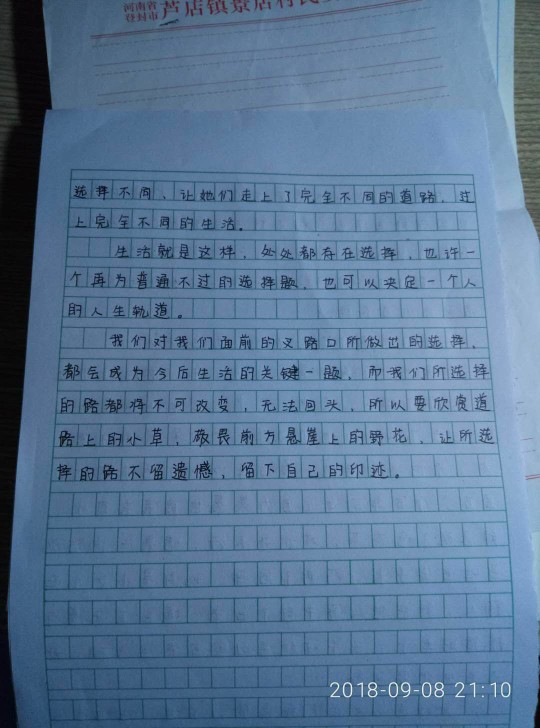 河南省
登封市 芦店镇景店村民
选择不同、让她们走上了完全不同的道路，过
上完全不同的生活。
生活就是这样，处处都存在选择，也许一
个再为普通不过的选择题，也可以决定一个人
的人生轨道。
我们对我们面前的叉路口所做出的选择，
都会成为今后生活的关键一题，而我们所选择
的路都将不可改变，无法回头，所以要欣赏道
路上的小草，敬畏前方悬崖上的野花，让所选
择的路不留遗憾，留下自己的印迹。
2018-09-08 21:10